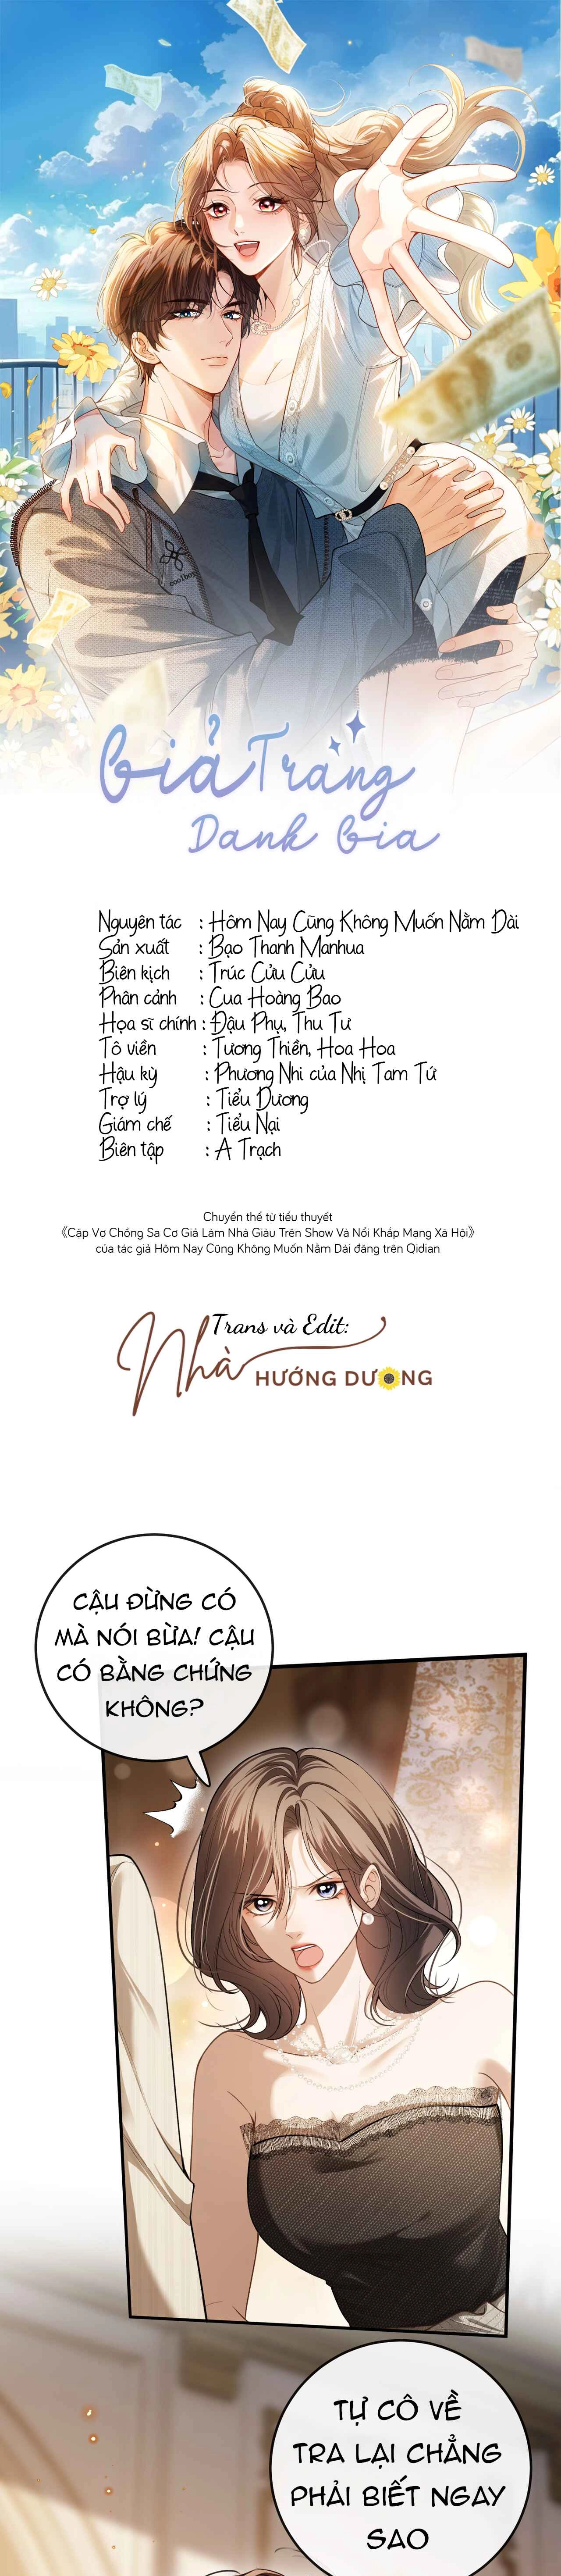 coolboy
Giả Trang
Danh Gia
Nguyên tác : Hôm Nay Cũng Không Muốn Nằm Dài
Sản xuất : Bạo Thanh Manhua
Biên kịch : Trúc Cửu Cửu
Phân cảnh : Cua Hoàng Bao
Họa sĩ chính : Đậu Phụ, Thu Tư
Tô viền : Tương Thiền, Hoa Hoa
Hậu kỳ : Phương Nhi của Nhị Tam Tứ
Trợ lý : Tiểu Dương
Giám chế : Tiểu Nại
Biên tập : A Trạch
Chuyển thể từ tiểu thuyết
《Cặp Vợ Chồng Sa Cơ Giả Làm Nhà Giàu Trên Show Và Nổi Khắp Mạng Xã Hội》
của tác giả Hôm Nay Cũng Không Muốn Nằm Dài đăng trên Qidian
Trans và Edit:
Nhà HƯỚNG DƯƠNG
CẬU ĐỪNG CÓ
MÀ NÓI BỪA! CẬU
CÓ BẰNG CHỨNG
KHÔNG?
TỰ CÔ VỀ
TRA LẠI CHẲNG
PHẢI BIẾT NGAY
SAO